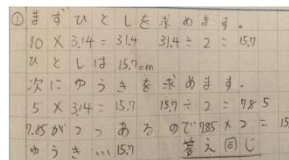 ① まずひとしを求めます。
10×3.14=31.4 31.4÷2=15.7
ひとしは15.7cm
次にゆうきを求めます。
5×3.14=15.7 15.7÷2=7.85
7.85が2つあるので7.85×2=15
ゆうき…15.7 答え同じ